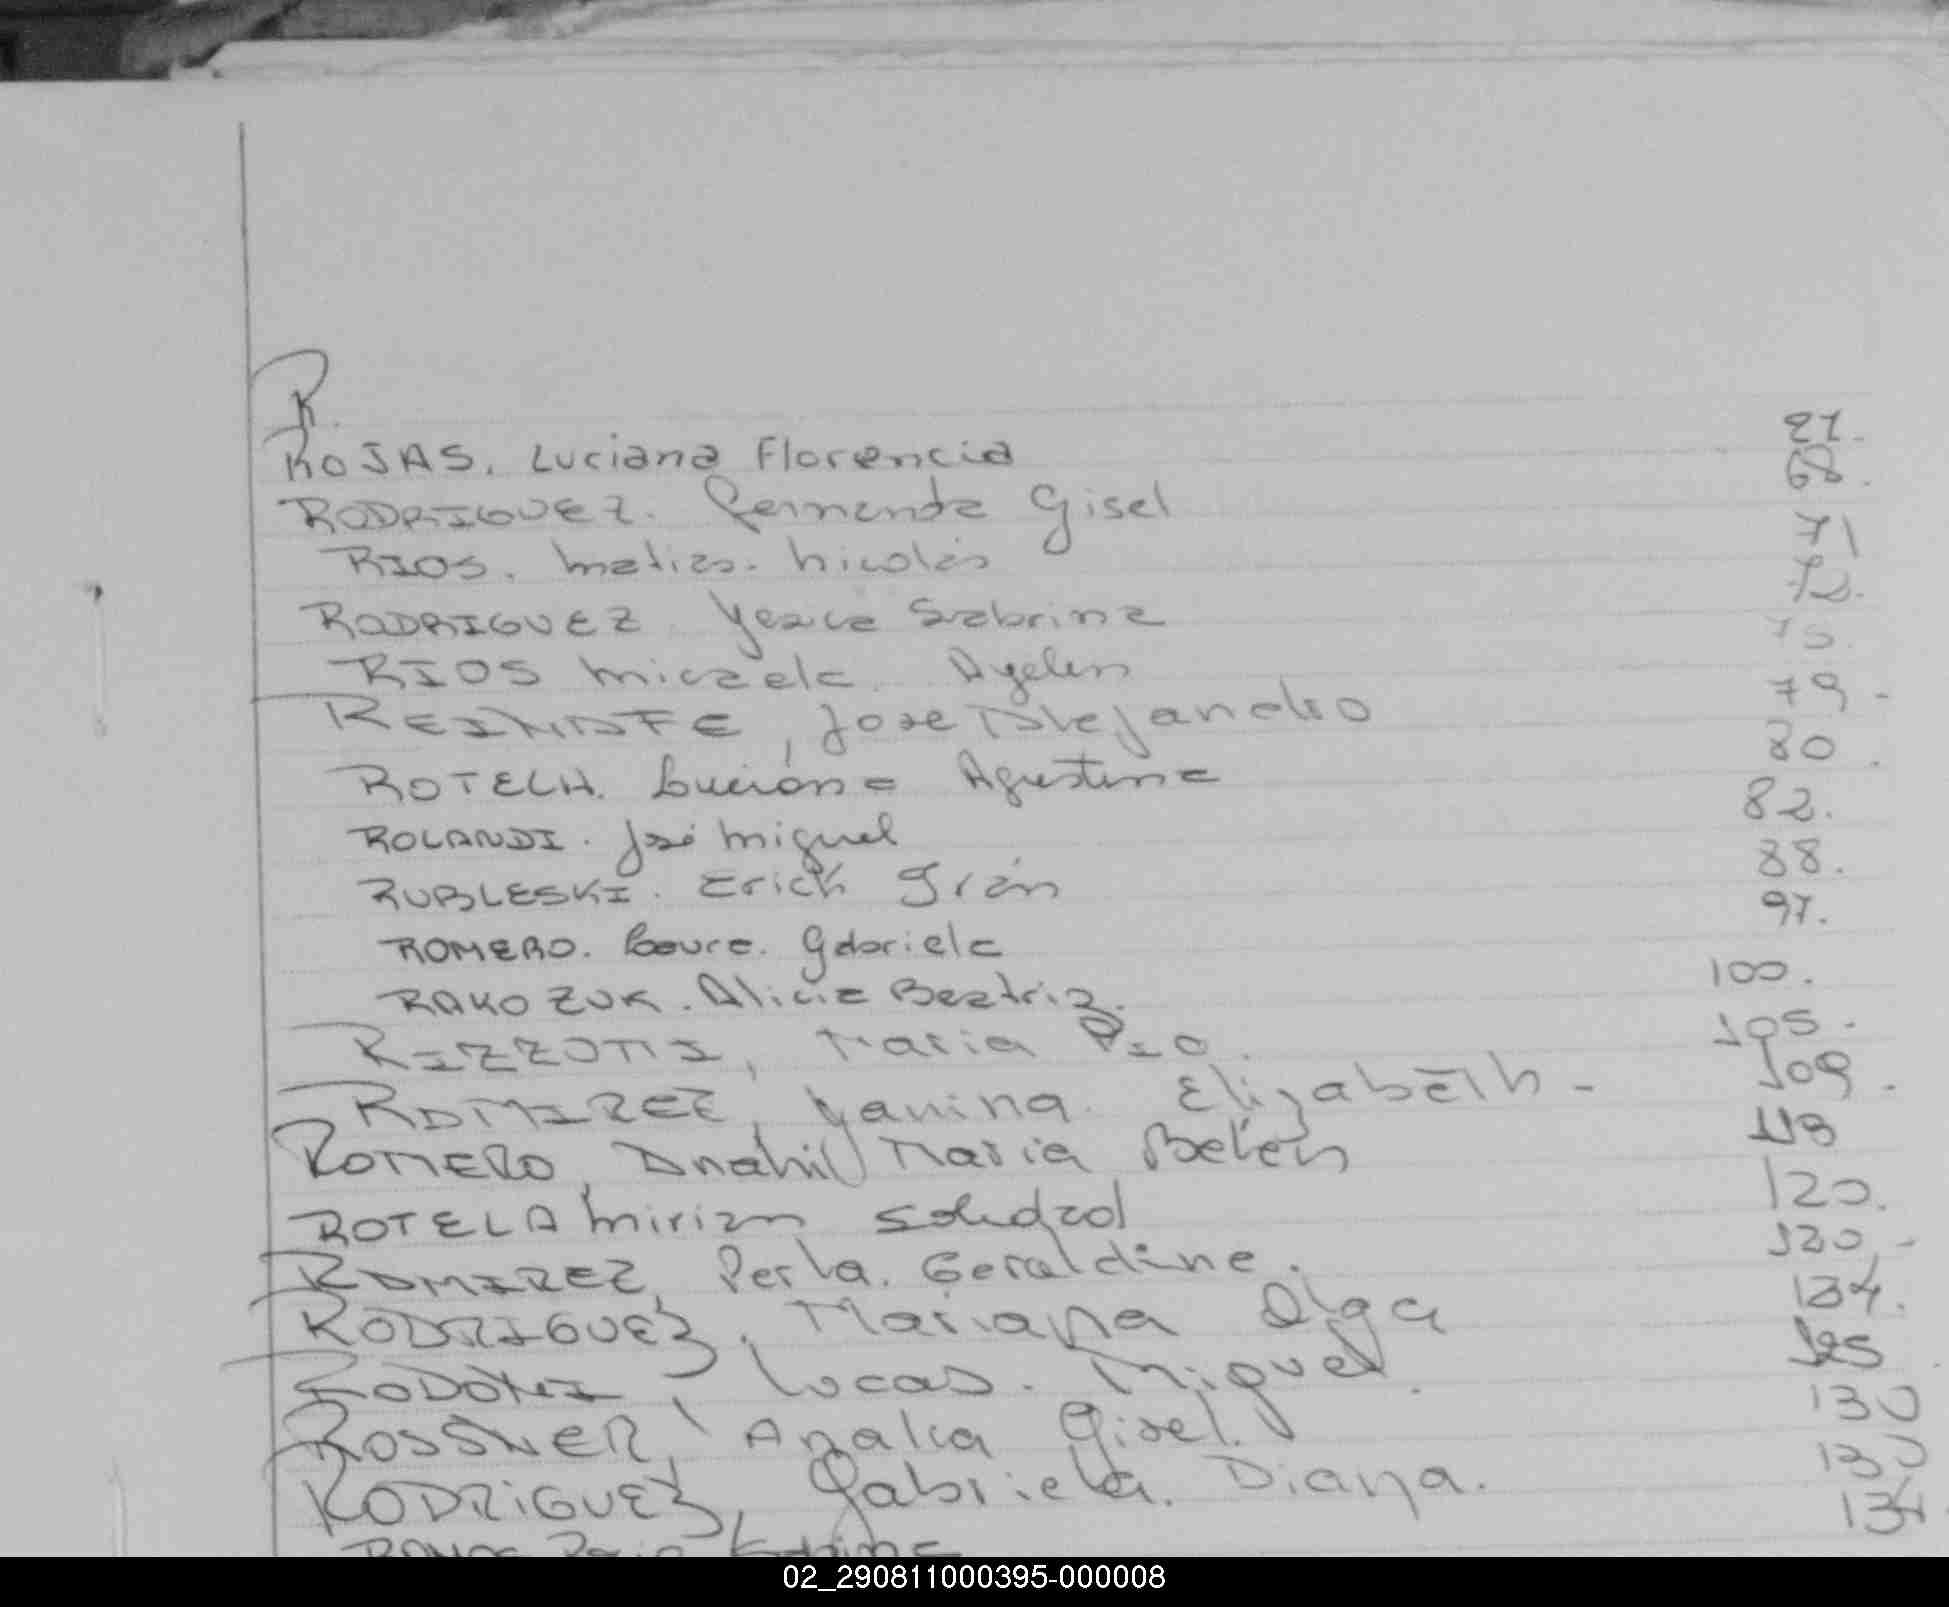 R.
ROJAS. Luciana Florencia 27.
RODRIGUEZ. Fernanda Gisel 68.
RIOS. Matias. Nicolás 71
RODRIGUEZ Yesica Sabrina 72.
RIOS Micaela Ayelen 75.
, Jose Alejandro 79-
ROTELA. Luciana Agustina 80.
ROLANDI. José Miguel 82.
RUBLESKI. Erick Iván 88.
ROMERO. Laura. Gabriela 97.
RAKOZUK. Alicia Beatriz. 100.
RIZZOTTI, Maria Pia. 105.
RAMIREZ, Yanina Elizabeth - 109.
ROMERO, Anahi Maria Belén 113
ROTELA Miriam Soledad 120.
RAMIREZ, Perla. Geraldine. 120.-
RODRIGUEZ, Mariana Olga
Lucas. Miguel. 125
ROSSNER, Analia Gisel. 130
RODRIGUEZ, Gabriela. Diana. 130
134
02_290811000395-000008